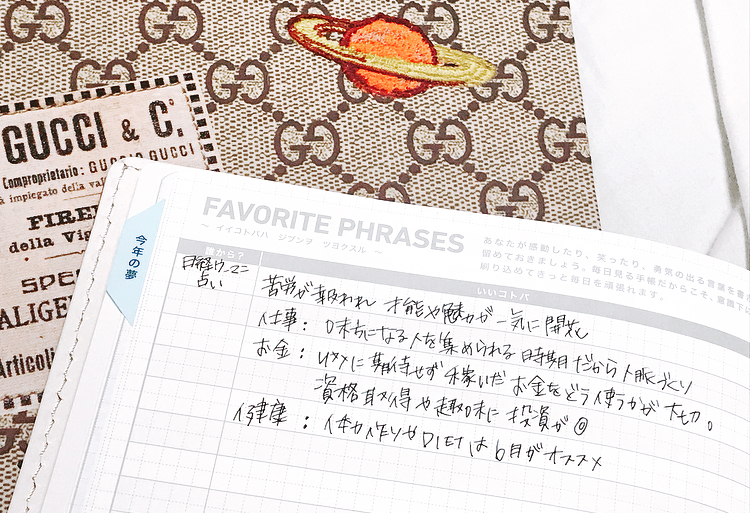 GUCCI & C.
Comproprietario: GUCCIO GUCCI
impiegato della val
FIRE
della Vig
SPE
ALIGE
Articoli
今年の夢
FAVORITE PHRASES
～ イイコトバハ ジブンヲ ツヨクスル ～
あなたが感動したり、笑ったり、勇気の出る言葉を書
留めておきましょう。毎日見る手帳だからこそ、意識下に
刷り込めてきっと毎日を頑張れます。
誰から？
いいコトバ
日経ウーマン
占い
苦労が報われ 才能や魅力が一気に開花
仕事： 味方になる人を集められる時期だから人脈づくり
お金： 収入に期待せず 稼いだお金をどう使うかが大切。
資格取得や趣味に投資が◎
健康： 体力作りやDIETは6月がオススメ